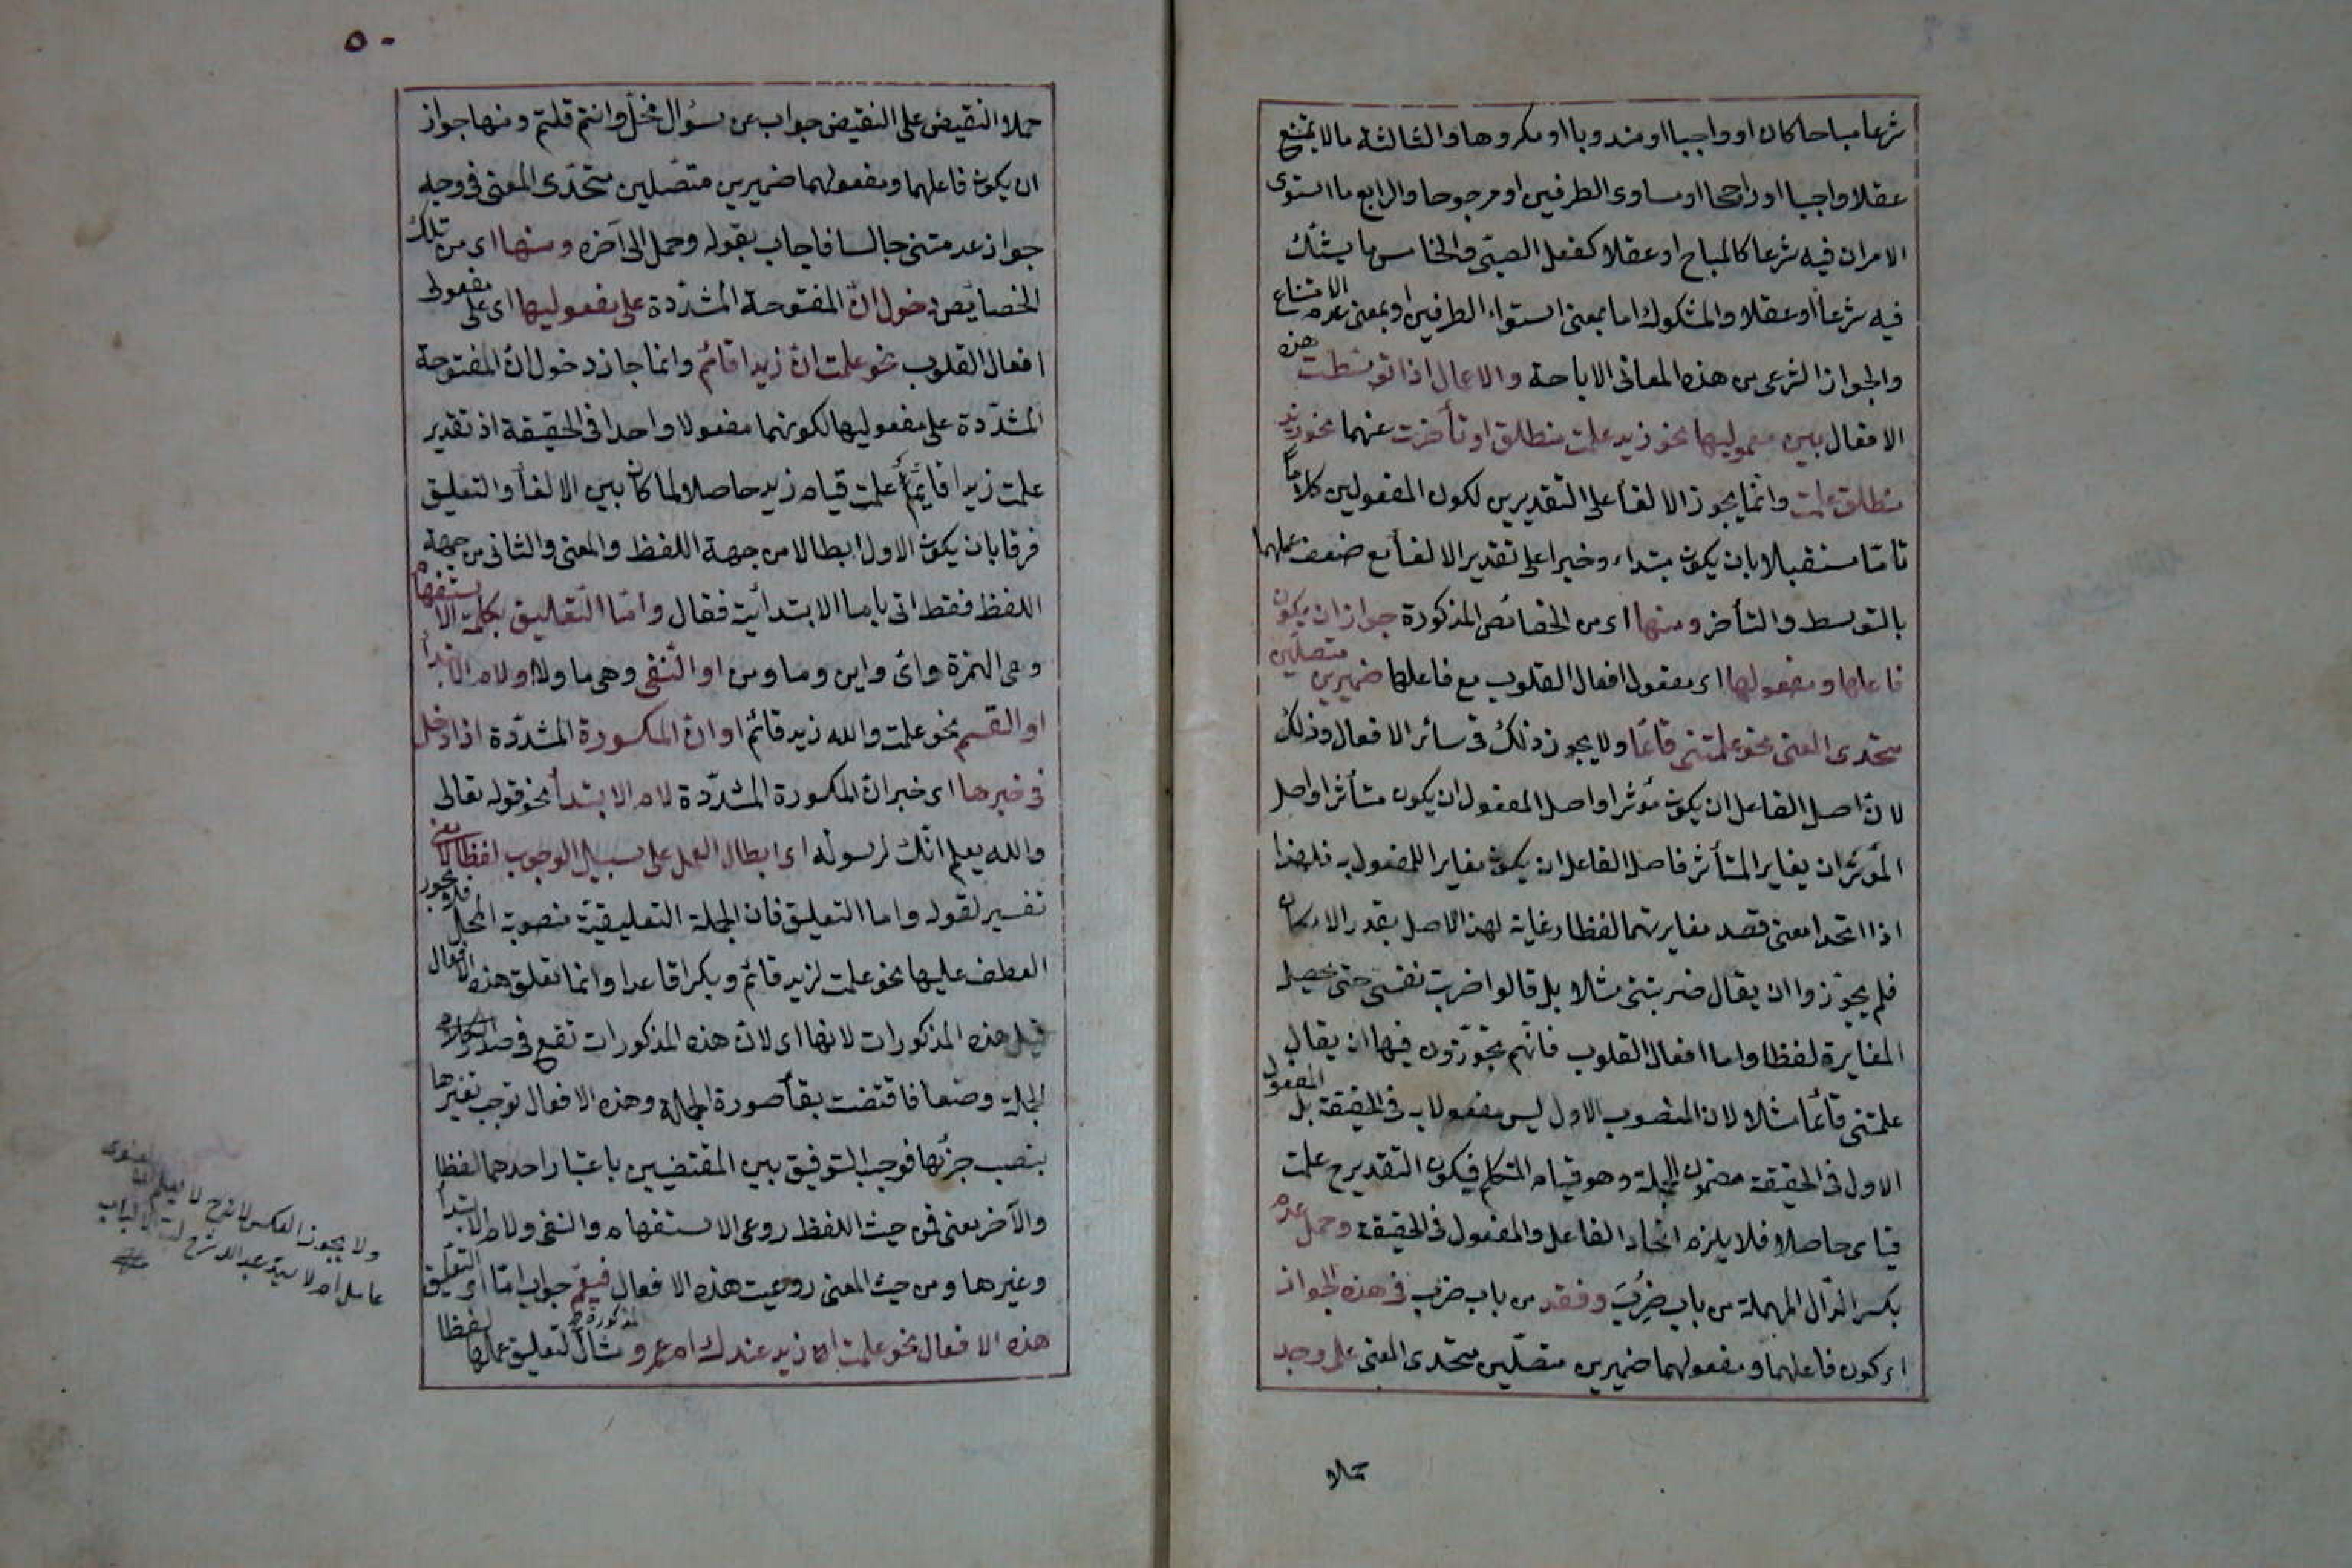 شرعا مباحا كان او واجبا او مندوبا او مكروها والثالثة ما لا يمتنع
عقلا واجبا او راجحا او مساوى الطرفين او مرجوحا والرابع ما استوى
الامران فيه شرعا كالمباح او عقلا كفعل الصبى والخامس ما يشك
فيه شرعا او عقلا والمشكوك اما بمعنى استواء الطرفين او بمعنى عدم الامتناع
والجواز الشرعى من هذه المعانى الاباحة والاعمال اذا توسطت هذه
الافعال بين معموليها نحو زيد علمت منطلق او تأخرت عنهما نحو زيد
منطلق علمت وانما يجوز الالغأ على التقديرين لكون المفعولين كلاما
تامّا مستقبلا بان يكون مبتداء وخبرا على تقدير الالغأ مع ضعف عملها
بالتوسط والتأخر ومنها اى من الخصائص المذكورة جواز ان يكون
فاعلها ومفعولها اى مفعول افعال القلوب مع فاعلها ضميرين متصلين
متحدى المعنى نحو علمتنى قائما ولا يجوز ذلك فى سائر الافعال وذلك
لان اصل الفاعل ان يكون مؤثرا واصل المفعول ان يكون متأثرا واصل
المؤثر ان يغاير المتأثر فاصل الفاعل ان يكون مغايرا للمفعول به فلهذا
اذا اتحدا معنى قصد مغايرتهما لفظا رعاية لهذا الاصل بقدر الامكان
فلم يجوّزوا ان يقال ضربتنى مثلا بل قالوا ضربت نفسى حتى يحصل
المغايرة لفظا واما افعال القلوب فانهم يجوّزون فيها ان يقال
علمتنى قائما مثلا لان المنصوب الاول ليس مفعولا به فى الحقيقة بل المفعول
الاول فى الحقيقة مضمون الجملة وهو قيام المتكلم فيكون التقدير ح علمت
قيامى حاصلا فلا يلزم اتحاد الفاعل والمفعول فى الحقيقة وحمل عدم
بكسر الدال المهملة من باب ضُرِبَ وفقد من باب ضرب فى هذه الجواز
اى كون فاعلهما ومفعولهما ضميرين متصلين متحدى المعنى على وجد
حملا
٥٠
حملا النقيض على النقيض جواب عن سؤال مخل وانتم قلتم ومنها جواز
ان يكون فاعلهما ومفعولهما ضميرين متصلين متحدى المعنى فى وجه
جواز عدمتنى جالسا فاجاب بقوله وحمل الى آخره ومنها اى من تلك
الخصايص دخول انّ المفتوحة المشدّدة على مفعوليها اى على مفعولى
افعال القلوب نحو علمت انّ زيدا قائم وانما جاز دخول انّ المفتوحة
المشدّدة على مفعوليها لكونهما مفعولا واحدا فى الحقيقة اذ تقدير
علمت زيدا قائما علمت قيام زيد حاصلا ولما كان بين الالغأ والتعليق
فرقا بان يكون الاول ابطالا من جهة اللفظ والمعنى والثانى من جهة
اللفظ فقط اتى باما الابتدائية فقال وامّا التعليق بكلمة الاستفهام
وهى الهمزة واىّ واين وما ومن او النّفى وهى ما ولا او لام الابتدأ
او القسم نحو علمت والله زيد قائم او انّ المكسورة المشدّدة اذا دخل
فى خبرها اى خبر انّ المكسورة المشدّدة لام الابتدأ نحو قوله تعالى
والله يعلم انّك لرسوله اى ابطال العمل على سبيل الوجوب لفظا لا معنى
تفسير لقوله واما التعليق فان الجملة التعليقية منصوبة المحل فلا يجوز
العطف عليها نحو علمت لزيد قائم وبكرا قاعدا وانما تعلق هذه الافعال
قبل هذه المذكورات لانها اى لانّ هذه المذكورات تقع فى صدر الكلام
الجملة وضعا فاقتضت بقأ صورة الجملة وهذه الافعال توجب تغيرها
بنصب جزئها فوجب التوفيق بين المقتضيين باعتبار احدهما لفظا
والآخر معنى فمن حيث اللفظ روعى الاستفهام والنفى ولام الابتدأ
وغيرها ومن حيث المعنى روعيت هذه الافعال فيعمّ جواب امّا اى التعليق
هذه الافعال المذكورة نحو علمت ازيد عندك ام عمرو مثال لتعليق عملها لفظا
ولا يجوز العكس لانه ح لا
عامل ام لا سيد عبد الله شرح لب الالباب